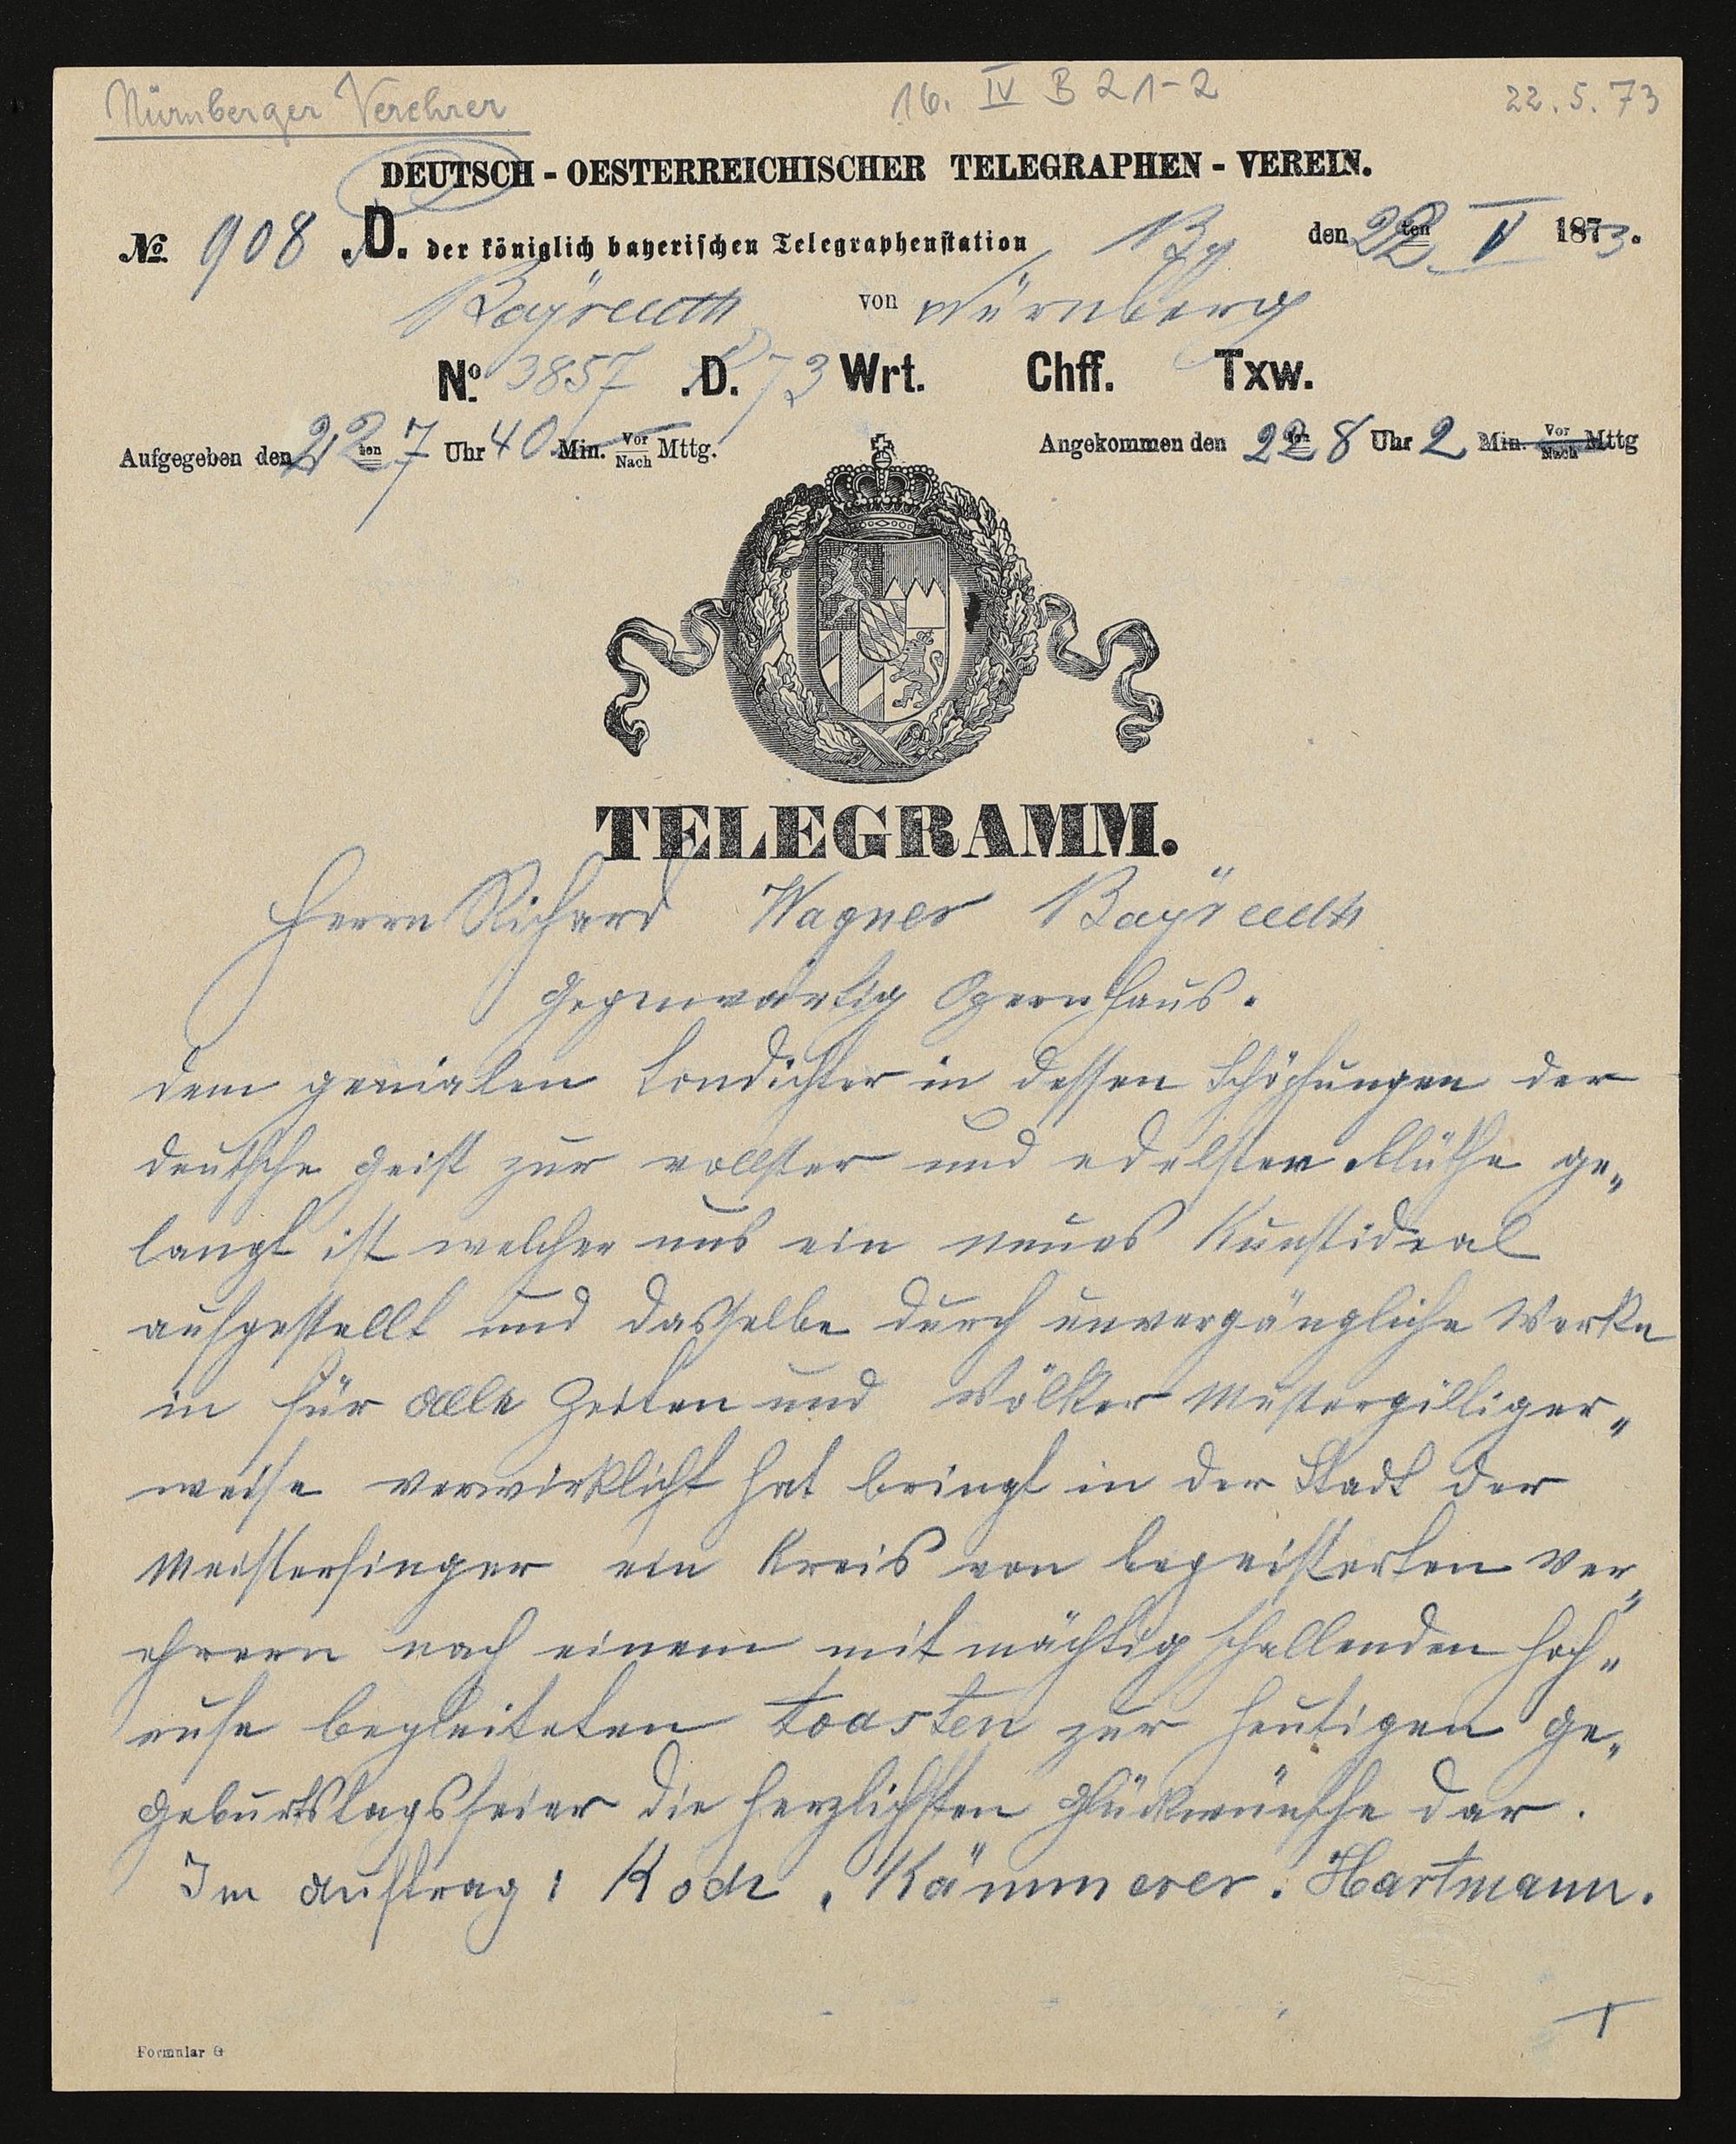 Nürnberger Verehrer 16. IV B 21-2 22.5.73
DEUTSCH - OESTERREICHISCHER TELEGRAPHEN - VEREIN.
No. 908 .D. der königlich bayerischen Telegraphenstation By den 22ten V 1873.
Bayreuth von Nürnberg
No. 3857 .D. 73 Wrt. Chff. Txw.
Aufgegeben den 22ten 7 Uhr 40 Min. Vor Nach Mttg. Angekommen den 22ten 8 Uhr 2 Min. Vor Nach Mttg
TELEGRAMM.
Herrn Richard Wagner Bayreuth
Gegenwärtig Opernhaus.
dem genialen Tondichter in dessen Schöpfungen der
deutsche Geist zur vollster und edelster Blüthe ge„
langt ist welcher uns ein neues Kunstideal
aufgestellt und dasselbe durch unvergängliche Werke
in für alle Zeiten und Völker Mustergilliger„
weise verwirklicht hat bringt in der Stadt der
Meistersinger ein Kreis von begeisterten Ver„
ehrern nach einem mit mächtig schallenden Hoch„
rufe begleiteten toasten zur heutigen Ge„
geburtstagsfeier die herzlichsten Glückwünsche dar.
Im Auftrag: Koch. Kämmerer. Hartmann.
Formular G